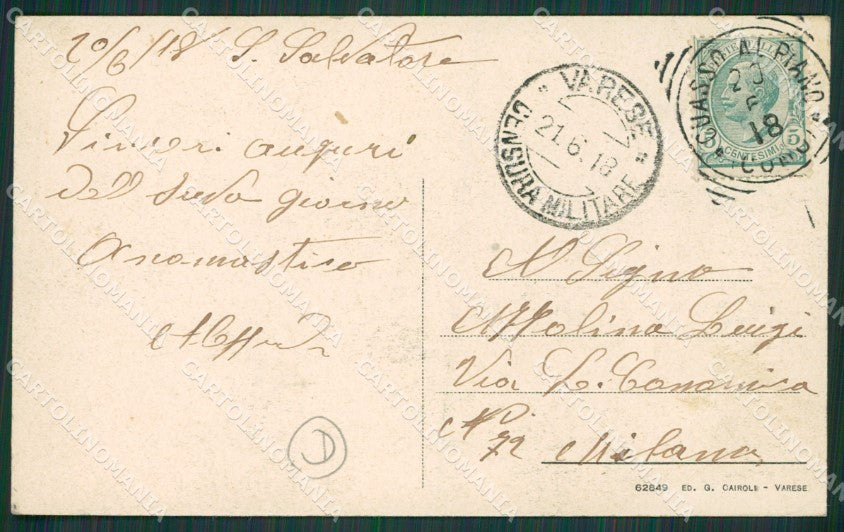 20/6/18 S. Salvatore
Sinceri auguri
dell suo giorno
Onomastico
VARESE
21.6.18
CENSURA MILITARE
CUASSO AL PIANO
18
5 CENTESIMI 5
Al Signo
Luigi
Via L. Canonica
No. 72 Milano
D
62649 ED. G. CAIROLI - VARESE
CARTOLINOMANIA